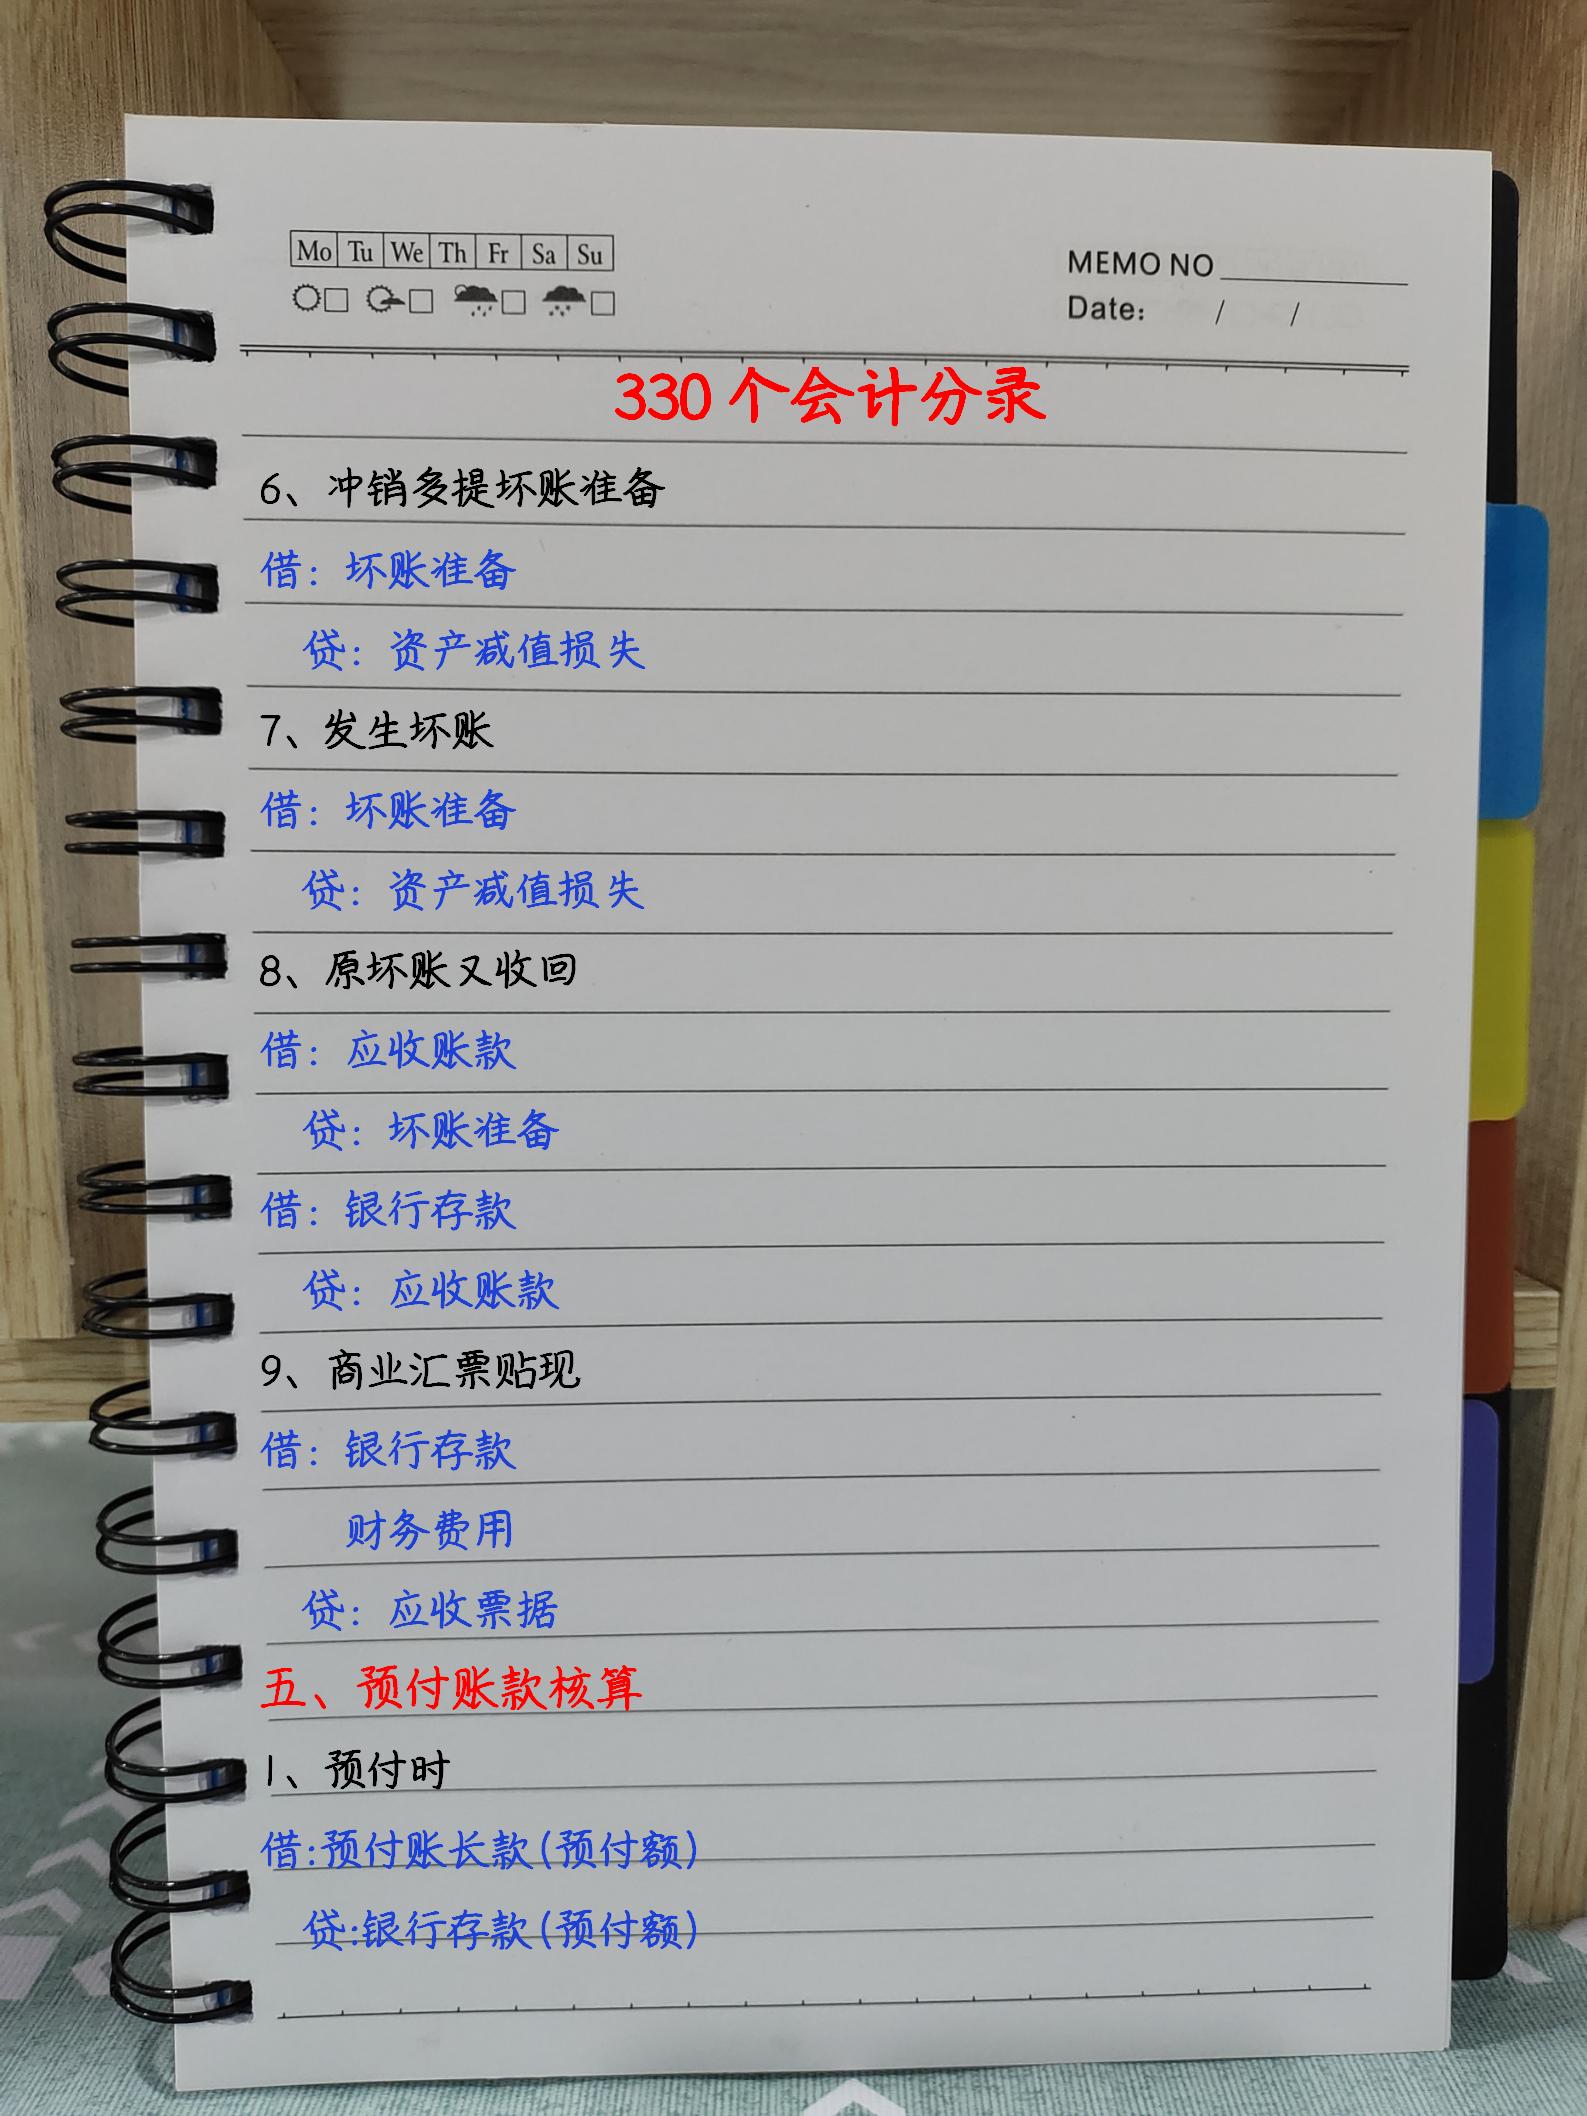 Mo Tu We Th Fr Sa Su
MEMO NO
Date: / /
330个会计分录
6、冲销多提坏账准备
借：坏账准备
贷：资产减值损失
7、发生坏账
借：坏账准备
贷：资产减值损失
8、原坏账又收回
借：应收账款
贷：坏账准备
借：银行存款
贷：应收账款
9、商业汇票贴现
借：银行存款
财务费用
贷：应收票据
五、预付账款核算
1、预付时
借:预付账长款(预付额)
贷:银行存款(预付额)